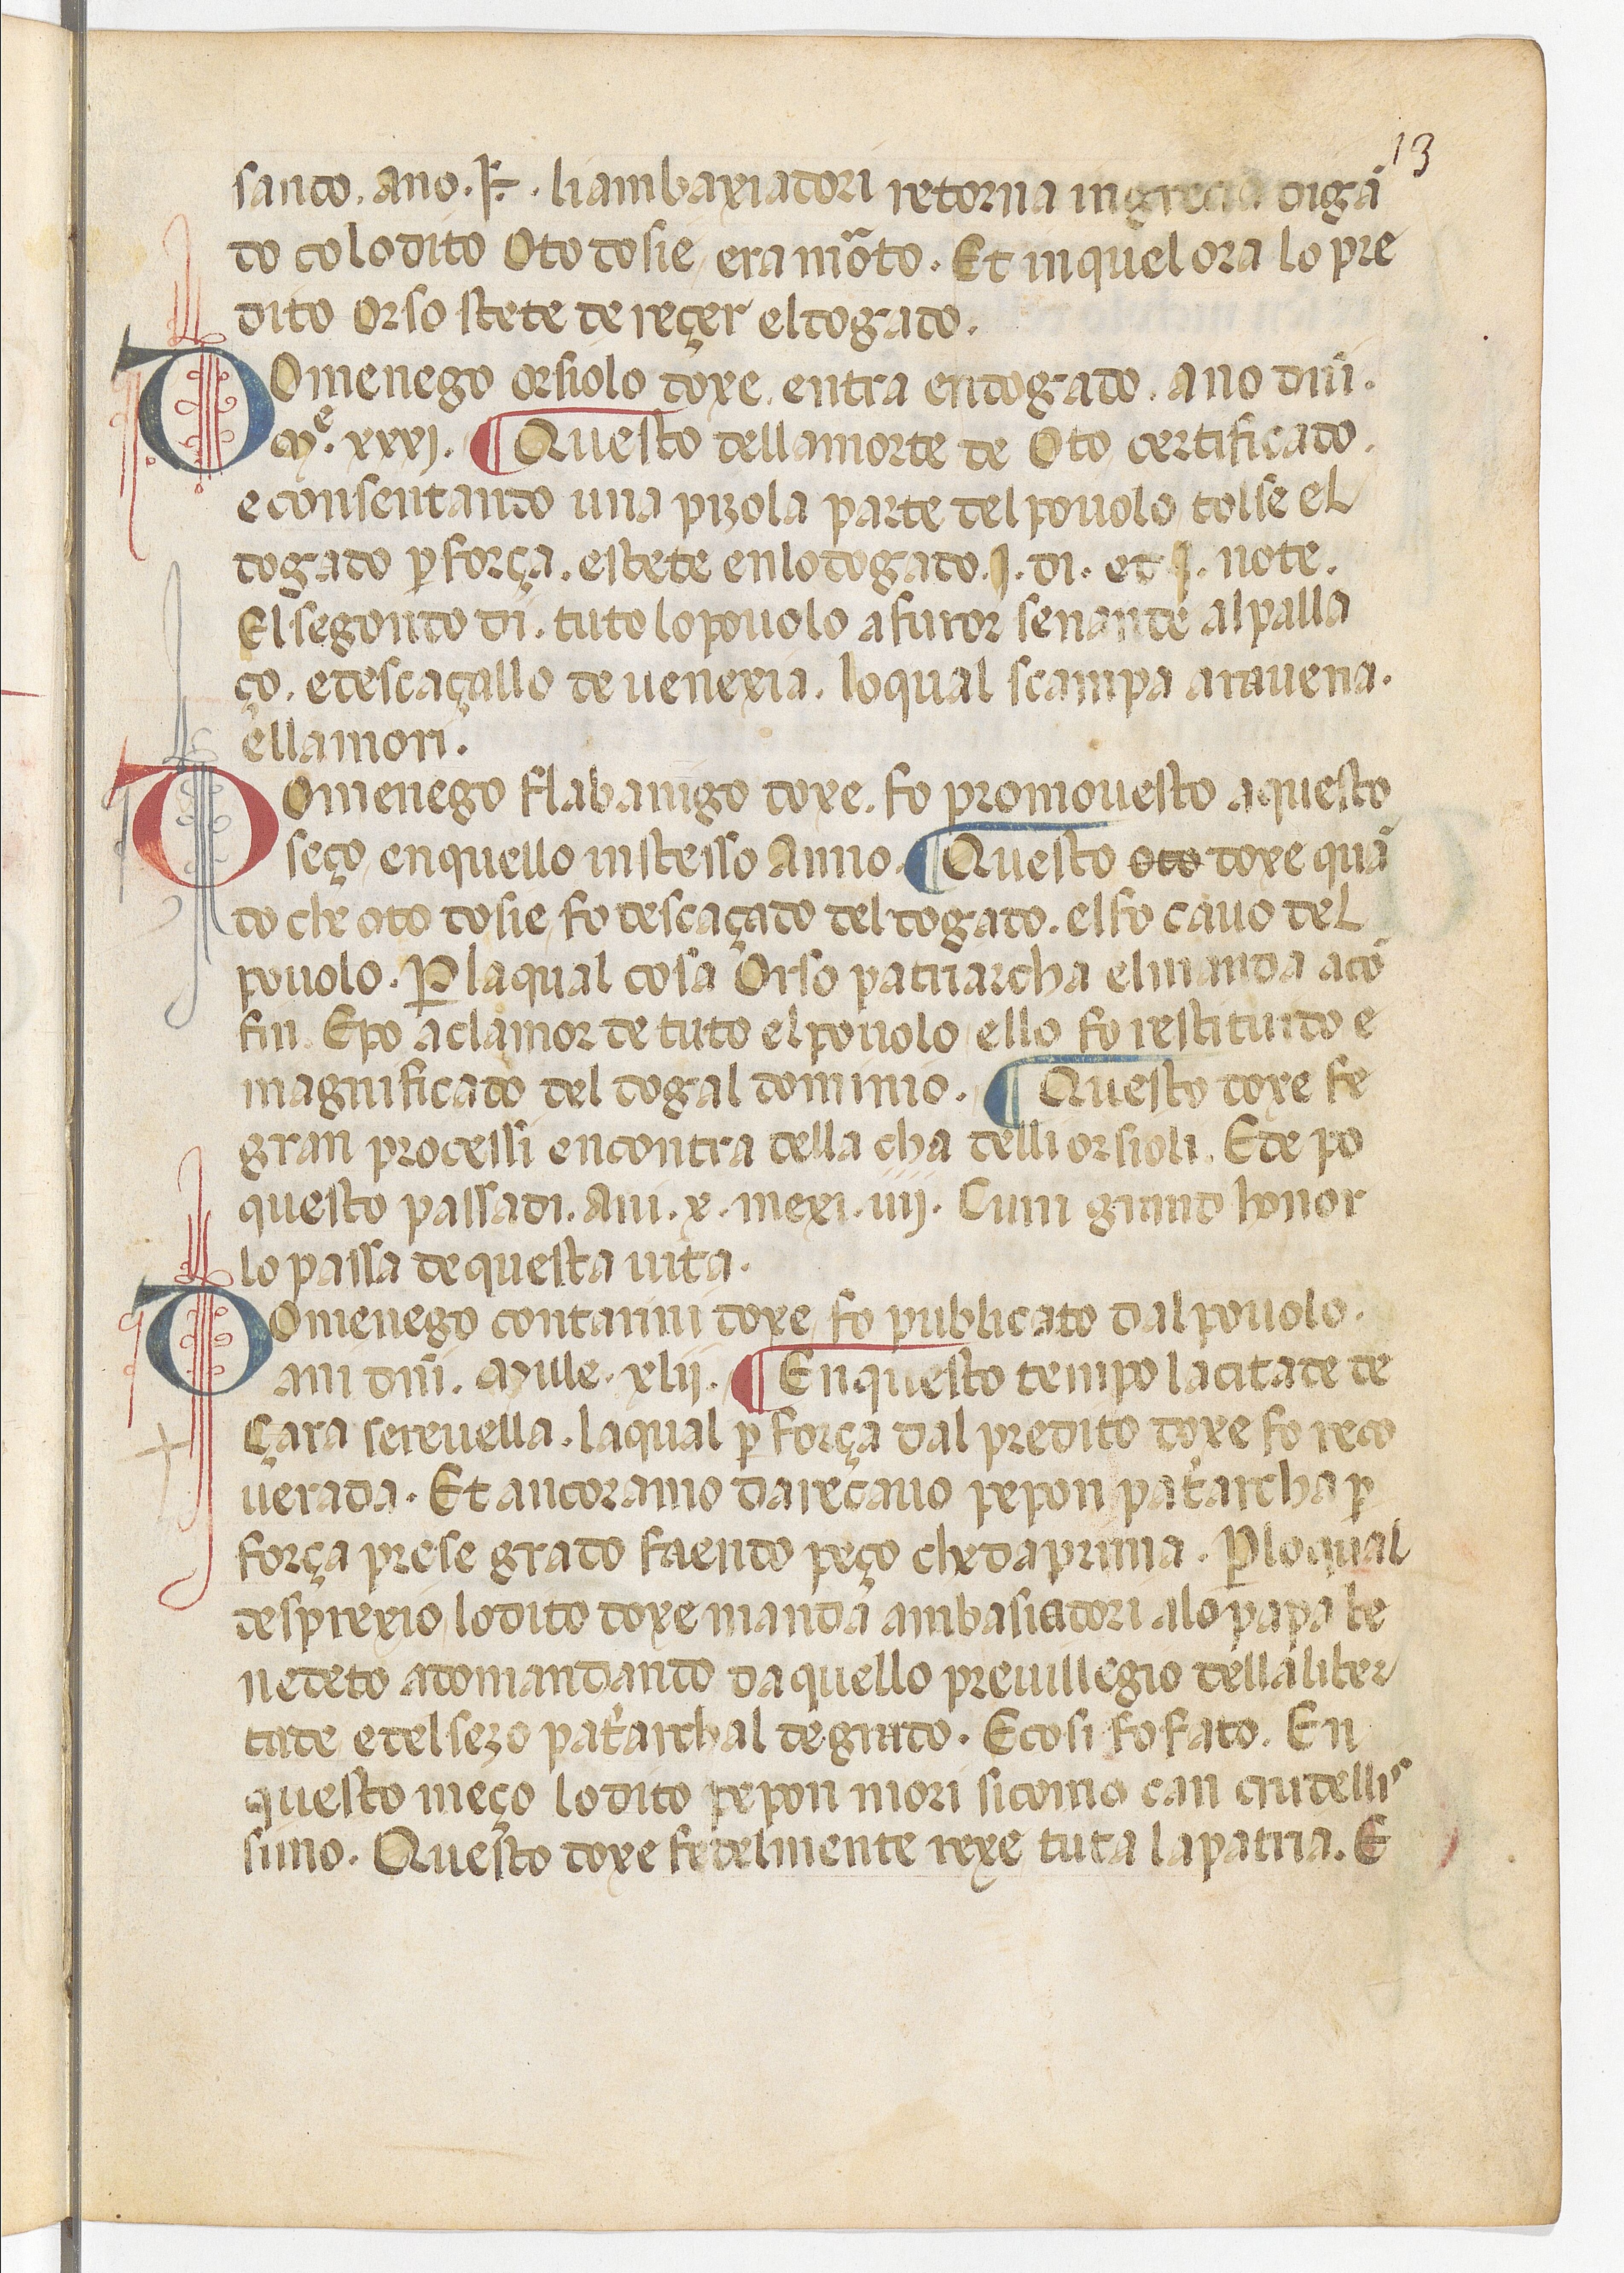 13
sando. ano. j÷. li ambaxiadori retorna in grecia digã
do co lo dito Oto dosie era mõto. Et in quel ora lo pre
dito Orso stete de reçer el dogado.
DOmenego orsiolo doxe. entra en dogado. ano dnĩ.
Mᵉ. xxxj. ¶ Questo della morte de Oto certificado.
e consentando una pizola parte del povolo tolse el
dogado ꝑ força. e stete en lo dogado. j. di. et j. note.
El segondo di. tuto lo povolo a furor se nande al palla
ço. e descaçallo de venexia. lo qual scampa a ravena.
e lla mori.
DOmenego flabanigo doxe. fo promovesto a questo
seço en quello instesso Anno. ¶ Questo oto doxe quã
do che oto dosie fo descaçado del dogado. el fo cavo del
povolo. Ꝑ la qual cosa Orso patriarcha el manda a cõ
fin. E po a clamor de tuto el povolo ello fo restituido e
magnificado del dogal dominio. ¶ Questo doxe fe
gran processi encontra della cha delli orsioli. E de po
questo passadi. Ani. x. mexi. iiij. Cum grando honor
lo passa de questa vita.
DOmenego contarini doxe fo publicato dal povolo.
ani dnĩ. Mille. xlij. ¶ En questo tempo la citade de
Çara se revella. la qual ꝑ força dal predito doxe fo reco
verada. Et ancoramo da reçavo pepon pat'archa ꝑ
força prese grado faendo peço che da prima. Ꝑ lo qual
desprexio lo dito doxe manda ambasiadori a lo papa be
nedeto adomandando da quello previllegio della liber
tade e del sezo pat'archal de grado. E cosi fo fato. En
questo meço lo dito pepon mori si como can crudellis
simo. Questo doxe fedelmente rexe tuta la patria. E